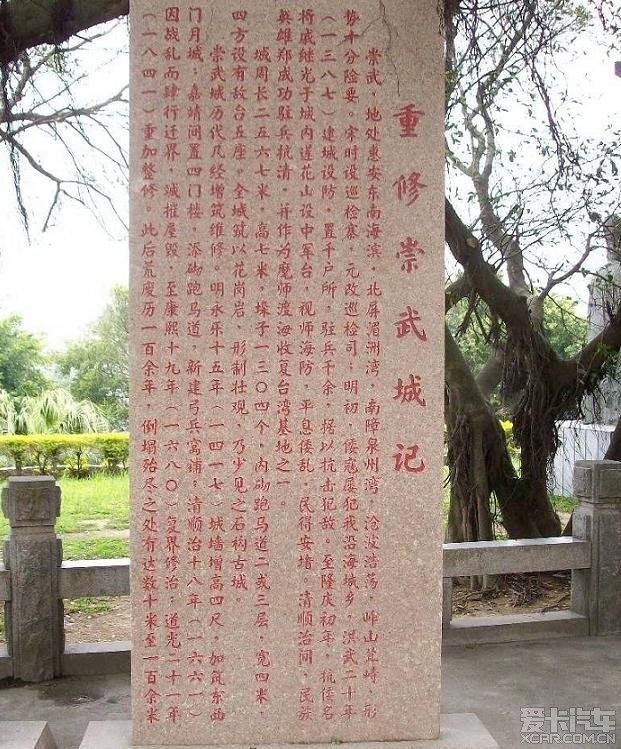 重修崇武城记
崇武，地处惠安东南海滨，北屏湄洲湾，南障泉州湾，沧波浩荡，岞山耸峙，形
势十分险要。宋时设巡检寨，元改巡检司；明初，倭寇屡犯我沿海城乡，洪武二十年
（一三八七）建城设防，置千户所，驻兵千余，据以抗击犯敌。至隆庆初年，抗倭名
将戚继光于城内莲花山设中军台，视师海防，平息倭乱，民得安堵。清顺治间，民族
英雄郑成功驻兵抗清，并作为魔师渡海收复台湾基地之一。
城周长二五六七米，高七米，垛子一三〇四个，内砌跑马道二或三层，宽四米，
四方设有敌台五座。全城筑以花岗岩，形制壮观，乃少见之石构古城。
崇武城历代几经增筑维修。明永乐十五年（一四一七）城墙增高四尺，加筑东西
门月城；嘉靖间置四门楼，添砌跑马道，新建弓兵窝铺；清顺治十八年（一六六一）
因战乱而肆行迁界，城摧屋毁，至康熙十九年（一六八〇）复界修治；道光二十一年
（一八四一）重加整修。此后荒废历一百余年，倒塌殆尽之处有达数十米至一百余米
爱卡汽车
XCAR.COM.CN